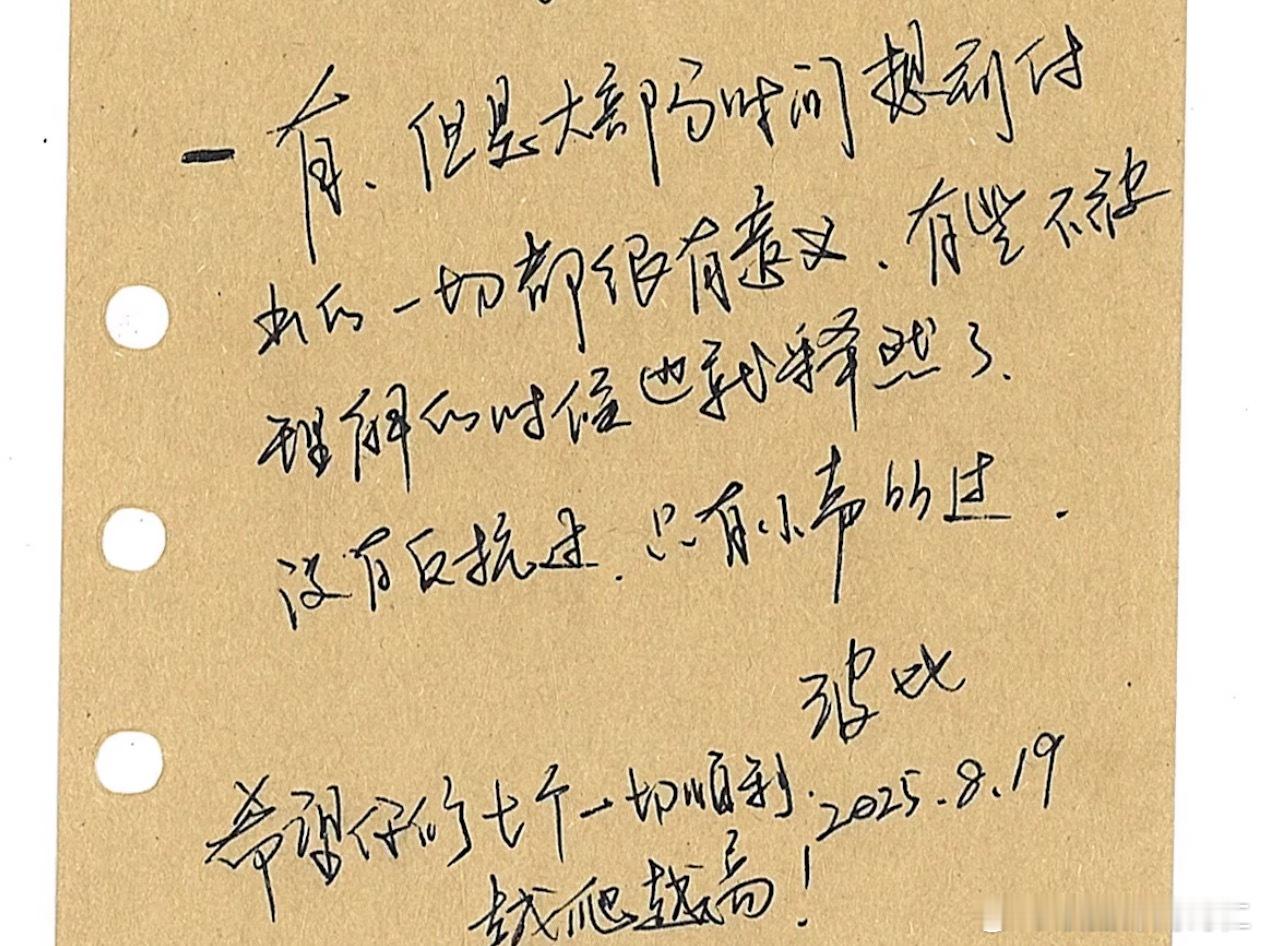 - 有、但是大部分时间想到付
出的一切都很有意义、有些不被
理解的时候也就释然了、
没有反抗过、只有小声的过.
波比
希望你们七个一切顺利.
2025.8.19
越爬越高！